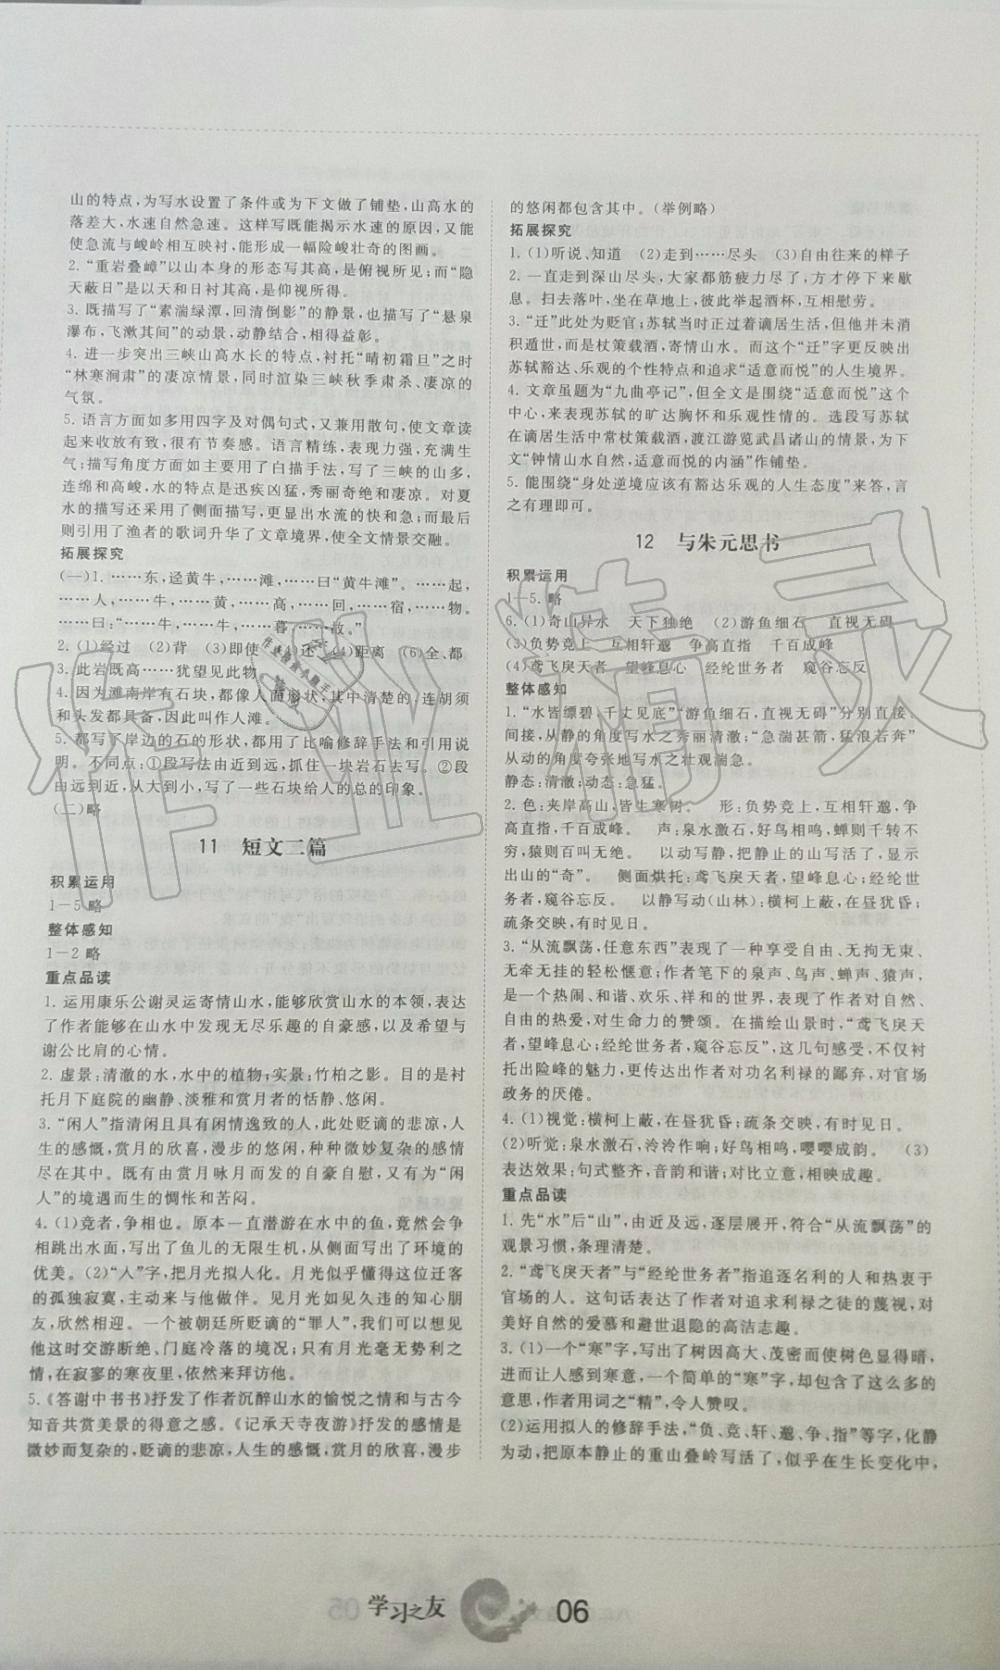 山的特点,为写水设置了条件或为下文做了铺垫,山高水的
落差大,水速自然急速。这样写既能揭示水速的原因,又能
使急流与峻岭相互映衬,能形成一幅险峻壮奇的图画。
2.“重岩叠嶂”以山本身的形态写其高,是俯视所见;而“隐
天蔽日”是以天和日衬其高,是仰视所得。
3.既描写了“素湍绿潭,回清倒影”的静景,也描写了“悬泉
瀑布,飞漱其间”的动景,动静结合,相得益彰。
4.进一步突出三峡山高水长的特点,衬托“晴初霜旦”之时
“林寒涧肃”的凄凉情景,同时渲染三峡秋季肃杀、凄凉的
气氛。
5.语言方面如多用四字及对偶句式,又兼用散句,使文章读
起来收放有致,很有节奏感。语言精练,表现力强,充满生
气;描写角度方面如主要用了白描手法,写了三峡的山多,
连绵和高峻,水的特点是迅疾凶猛,秀丽奇绝和凄凉。对夏
水的描写还采用了侧面描写,更显出水流的快和急;而最后
则引用了渔者的歌词升华了文章境界,使全文情景交融。
拓展探究
(一)1.……东,迳黄牛,……滩,……曰“黄牛滩”。……起,
……人,……牛,……高,……回,……宿,……物。
……曰:“……牛,……牛,……暮,……故。”
2.(1)经过 (2)背 (3)即使 (4)还 (5)距离 (6)全、都
3.此岩既高……犹望见此物
4.因为滩南岸有石块,都像人面形状,其中清楚的,连胡须
和头发都具备,因此叫作人滩。
5.都写了岸边的石的形状,都用了比喻修辞手法和引用说
明。不同点:①段写法由近到远,抓住一块岩石去写。②段
由远到近,从大到小,写了一些石块给人的总的印象。
(二)略
11 短文二篇
积累运用
1－5略
整体感知
1－2略
重点品读
1.运用康乐公谢灵运寄情山水,能够欣赏山水的本领,表达
了作者能够在山水中发现无尽乐趣的自豪感,以及希望与
谢公比肩的心情。
2.虚景:清澈的水,水中的植物;实景:竹柏之影。目的是衬
托月下庭院的幽静、淡雅和赏月者的恬静、悠闲。
3.“闲人”指清闲且具有闲情逸致的人,此处贬谪的悲凉,人
生的感慨,赏月的欣喜,漫步的悠闲,种种微妙复杂的感情
尽在其中。既有由赏月咏月而发的自豪自慰,又有为“闲
人”的境遇而生的惆怅和苦闷。
4.(1)竞者,争相也。原本一直潜游在水中的鱼,竟然会争
相跳出水面,写出了鱼儿的无限生机,从侧面写出了环境的
优美。(2)“人”字,把月光拟人化。月光似乎懂得这位迁客
的孤独寂寞,主动来与他做伴。见月光如见久违的知心朋
友,欣然相迎。一个被朝廷所贬谪的“罪人”,我们可以想见
他这时交游断绝、门庭冷落的境况;只有月光毫无势利之
情,在寂寥的寒夜里,依然来拜访他。
5.《答谢中书书》抒发了作者沉醉山水的愉悦之情和与古今
知音共赏美景的得意之感。《记承天寺夜游》抒发的感情是
微妙而复杂的,贬谪的悲凉,人生的感慨,赏月的欣喜,漫步
的悠闲都包含其中。(举例略)
拓展探究
1.(1)听说、知道 (2)走到……尽头 (3)自由往来的样子
2.一直走到深山尽头,大家都筋疲力尽了,方才停下来歇
息。扫去落叶,坐在草地上,彼此举起酒杯,互相慰劳。
3.“迁”此处为贬官;苏轼当时正过着谪居生活,但他并未消
积遁世,而是杖策载酒,寄情山水。而这个“迁”字更反映出
苏轼豁达、乐观的个性特点和追求“适意而悦”的人生境界。
4.文章虽题为“九曲亭记”,但全文是围绕“适意而悦”这个
中心,来表现苏轼的旷达胸怀和乐观性情的。选段写苏轼
在谪居生活中常杖策载酒,渡江游览武昌诸山的情景,为下
文“钟情山水自然,适意而悦的内涵”作铺垫。
5.能围绕“身处逆境应该有豁达乐观的人生态度”来答,言
之有理即可。
12 与朱元思书
积累运用
1－5.略
6.(1)奇山异水 天下独绝 (2)游鱼细石 直视无碍
(3)负势竞上 互相轩邈 争高直指 千百成峰
(4)鸢飞戾天者 望峰息心 经纶世务者 窥谷忘反
整体感知
1.“水皆缥碧,千丈见底”“游鱼细石,直视无碍”分别直接、
间接,从静的角度写水之秀丽清澈;“急湍甚箭,猛浪若奔”
从动的角度夸张地写水之壮观湍急。
静态:清澈;动态:急猛。
2.色:夹岸高山,皆生寒树。 形:负势竞上,互相轩邈,争
高直指,千百成峰。 声:泉水激石,好鸟相鸣,蝉则千转不
穷,猿则百叫无绝。 以动写静,把静止的山写活了,显示
出山的“奇”。 侧面烘托:鸢飞戾天者,望峰息心;经纶世
务者,窥谷忘反。 以静写动(山林):横柯上蔽,在昼犹昏;
疏条交映,有时见日。
3.“从流飘荡,任意东西”表现了一种享受自由、无拘无束、
无牵无挂的轻松惬意;作者笔下的泉声、鸟声、蝉声、猿声,
是一个热闹、和谐、欢乐、祥和的世界,表现了作者对自然、
自由的热爱,对生命力的赞颂。在描绘山景时,“鸢飞戾天
者,望峰息心;经纶世务者,窥谷忘反”,这几句感受,不仅衬
托出险峰的魅力,更传达出作者对功名利禄的鄙弃,对官场
政务的厌倦。
4.(1)视觉:横柯上蔽,在昼犹昏;疏条交映,有时见日。
(2)听觉:泉水激石,泠泠作响;好鸟相鸣,嘤嘤成韵。 (3)
表达效果:句式整齐,音韵和谐;对比立意,相映成趣。
重点品读
1.先“水”后“山”,由近及远,逐层展开,符合“从流飘荡”的
观景习惯,条理清楚。
2.“鸢飞戾天者”与“经纶世务者”指追逐名利的人和热衷于
官场的人。这句话表达了作者对追求利禄之徒的蔑视,对
美好自然的爱慕和避世退隐的高洁志趣。
3.(1)一个“寒”字,写出了树因高大、茂密而使树色显得暗,
进而让人感到寒意,一个简单的“寒”字,却包含了这么多的
意思,作者用词之“精”,令人赞叹。
(2)运用拟人的修辞手法,“负、竞、轩、邈、争、指”等字,化静
为动,把原本静止的重山叠岭写活了,似乎在生长变化中,
学习之友
06